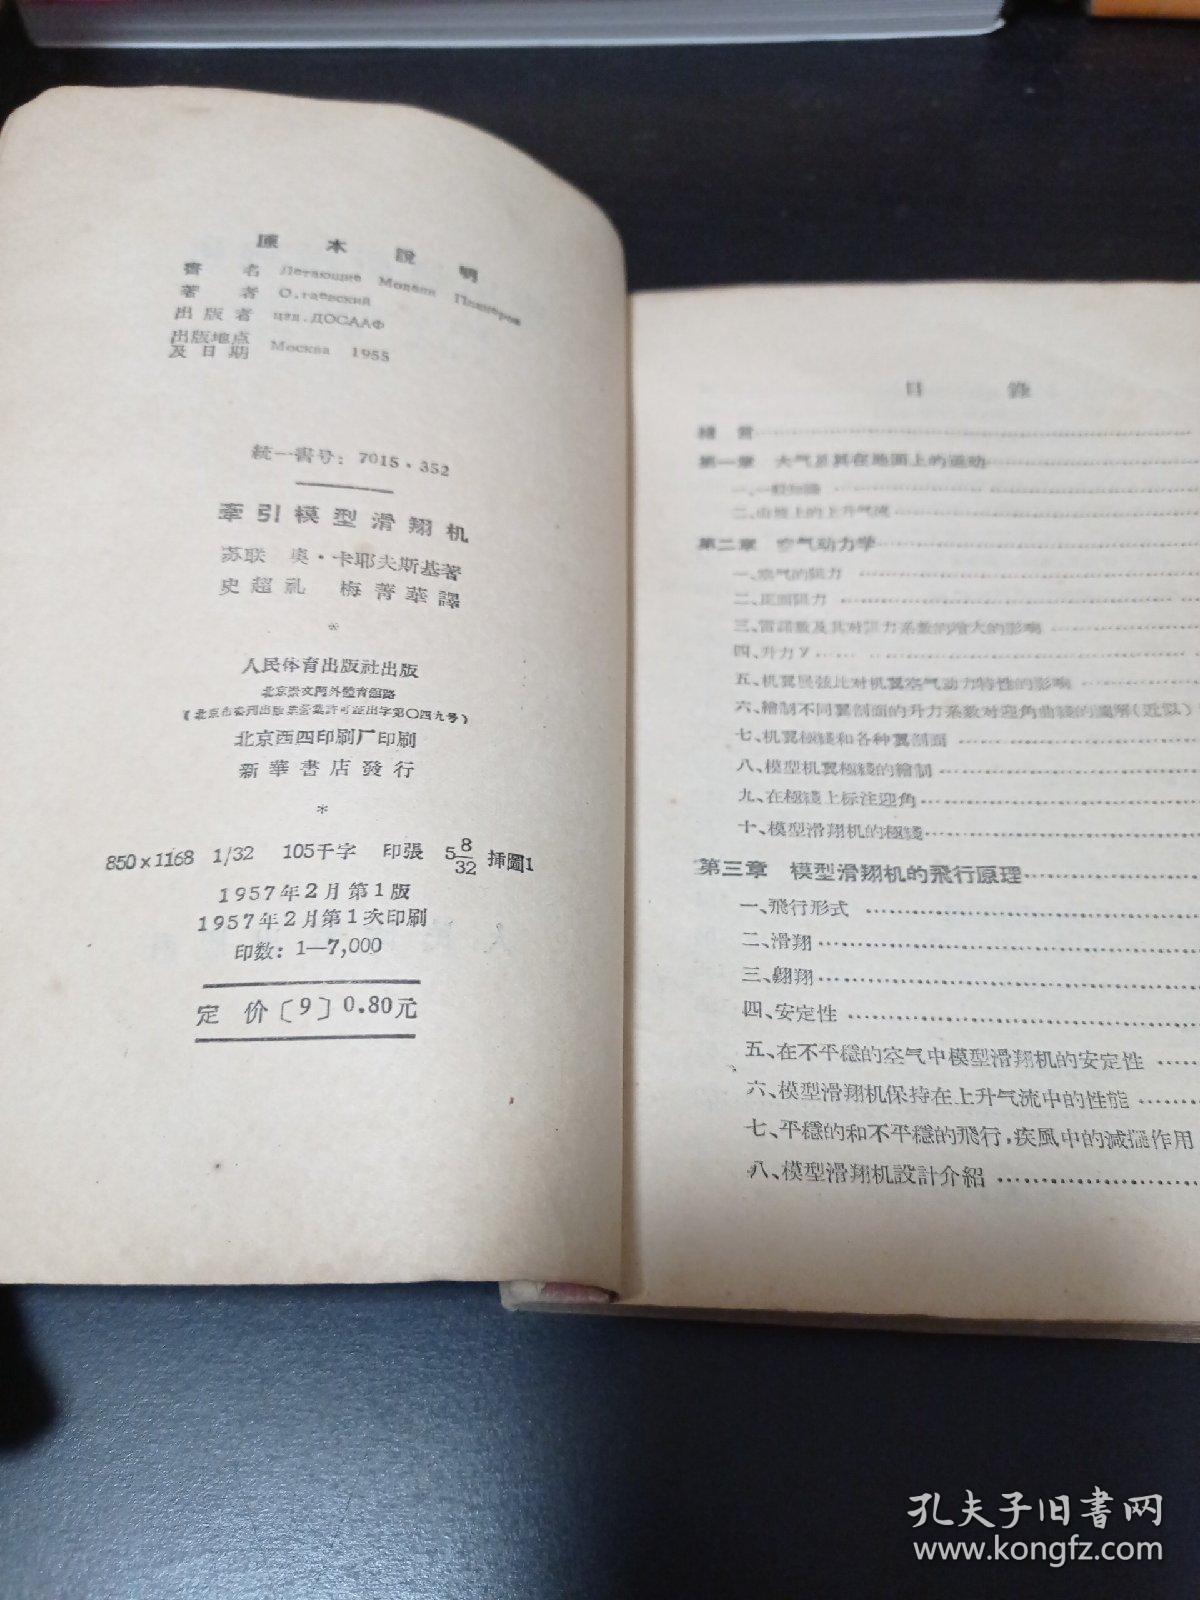 原本說明
書名 Летающие Модели Планеров
著者 О.гаевский
出版者 изд.ДОСААФ
出版地点
及日期 Москва 1955
統一書号：7015·352
牽引模型滑翔机
苏联 奥·卡耶夫斯基著
史超礼 梅菁華譯
*
人民体育出版社出版
北京崇文門外體育舘路
（北京市書刊出版業营業許可証出字第〇四九号）
北京西四印刷厂印刷
新華書店發行
*
850×1168 1/32 105千字 印張 5 8/32 挿圖1
1957年2月第1版
1957年2月第1次印刷
印数：1—7,000
定价〔9〕0.80元
目錄
緒言
第一章 大气及其在地面上的运动
一、一般知識
二、山坡上的上升气流
第二章 空气动力学
一、空气的阻力
二、压面阻力
三、雷諾数及其对阻力系数的增大的影响
四、升力Y
五、机翼展弦比对机翼空气动力特性的影响
六、繪制不同翼剖面的升力系数对迎角曲綫的圖解（近似）
七、机翼極綫和各种翼剖面
八、模型机翼極綫的繪制
九、在極綫上标注迎角
十、模型滑翔机的極綫
第三章 模型滑翔机的飛行原理
一、飛行形式
二、滑翔
三、翺翔
四、安定性
五、在不平穩的空气中模型滑翔机的安定性
六、模型滑翔机保持在上升气流中的性能
七、平穩的和不平穩的飛行，疾風中的減擺作用
八、模型滑翔机設計介紹
孔夫子旧書网
www.kongfz.com